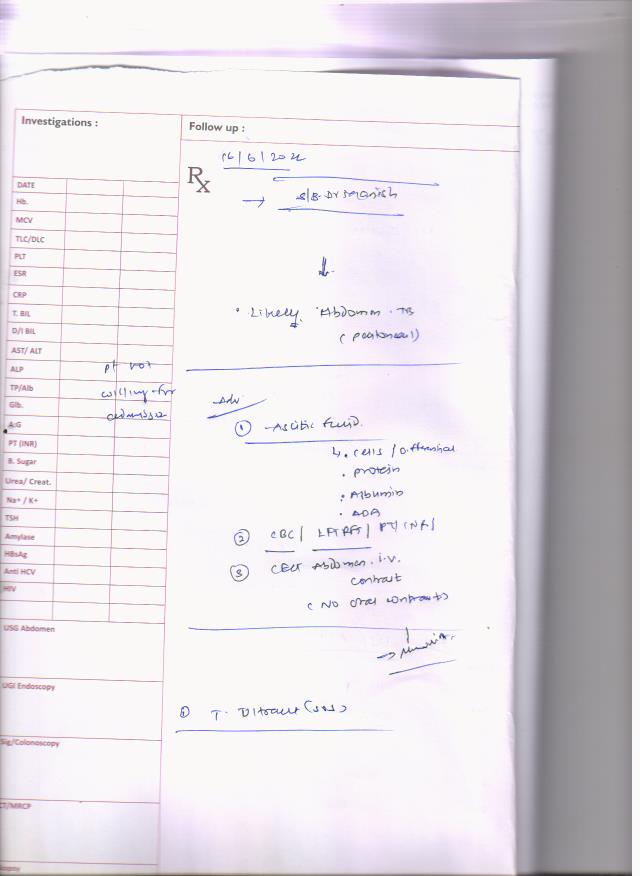 Investigations :
DATE
Hb.
MCV
TLC/DLC
PLT
ESR
CRP
T. BIL
D/I BIL
AST/ ALT
ALP
TP/Alb
Glb.
A:G
PT (INR)
B. Sugar
Urea/ Creat.
Na+ / K+
TSH
Amylase
HBsAg
Anti HCV
HIV
USG Abdomen
UGI Endoscopy
Sig/Colonoscopy
CT/MRCP
pt not
willing for
admission
Follow up :
Rx
16/6/2022
→ S/B Dr Manish
↓
• Likely Abdomen TB
(peritoneal)
Adv
① Ascitic fluid
↳ • cells / Differential
• protein
• Albumin
• ADA
② CBC / LFT RFT / PT/INR/
③ CECT Abdomen i.v.
contrast
( NO oral contrast)
① T.